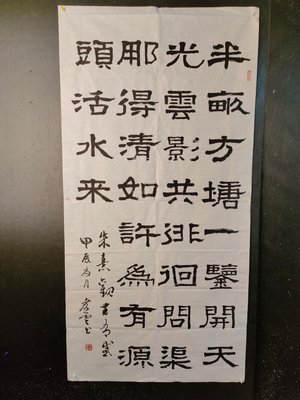 半畝方塘一鑒開天
光雲影共徘徊問渠
那得清如許爲有源
頭活水来
朱熹觀書有感
甲辰月